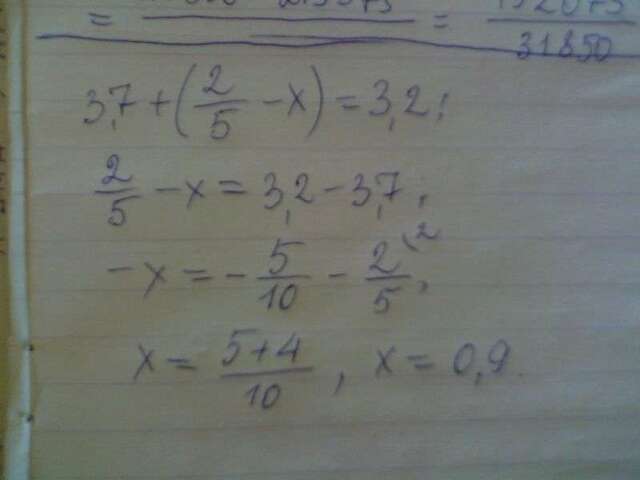 = =
31850
3,7 + (2/5 - x) = 3,2;
2/5 - x = 3,2 - 3,7;
-x = - 5/10 - 2/5 (2;
x = 5+4/10, x = 0,9.